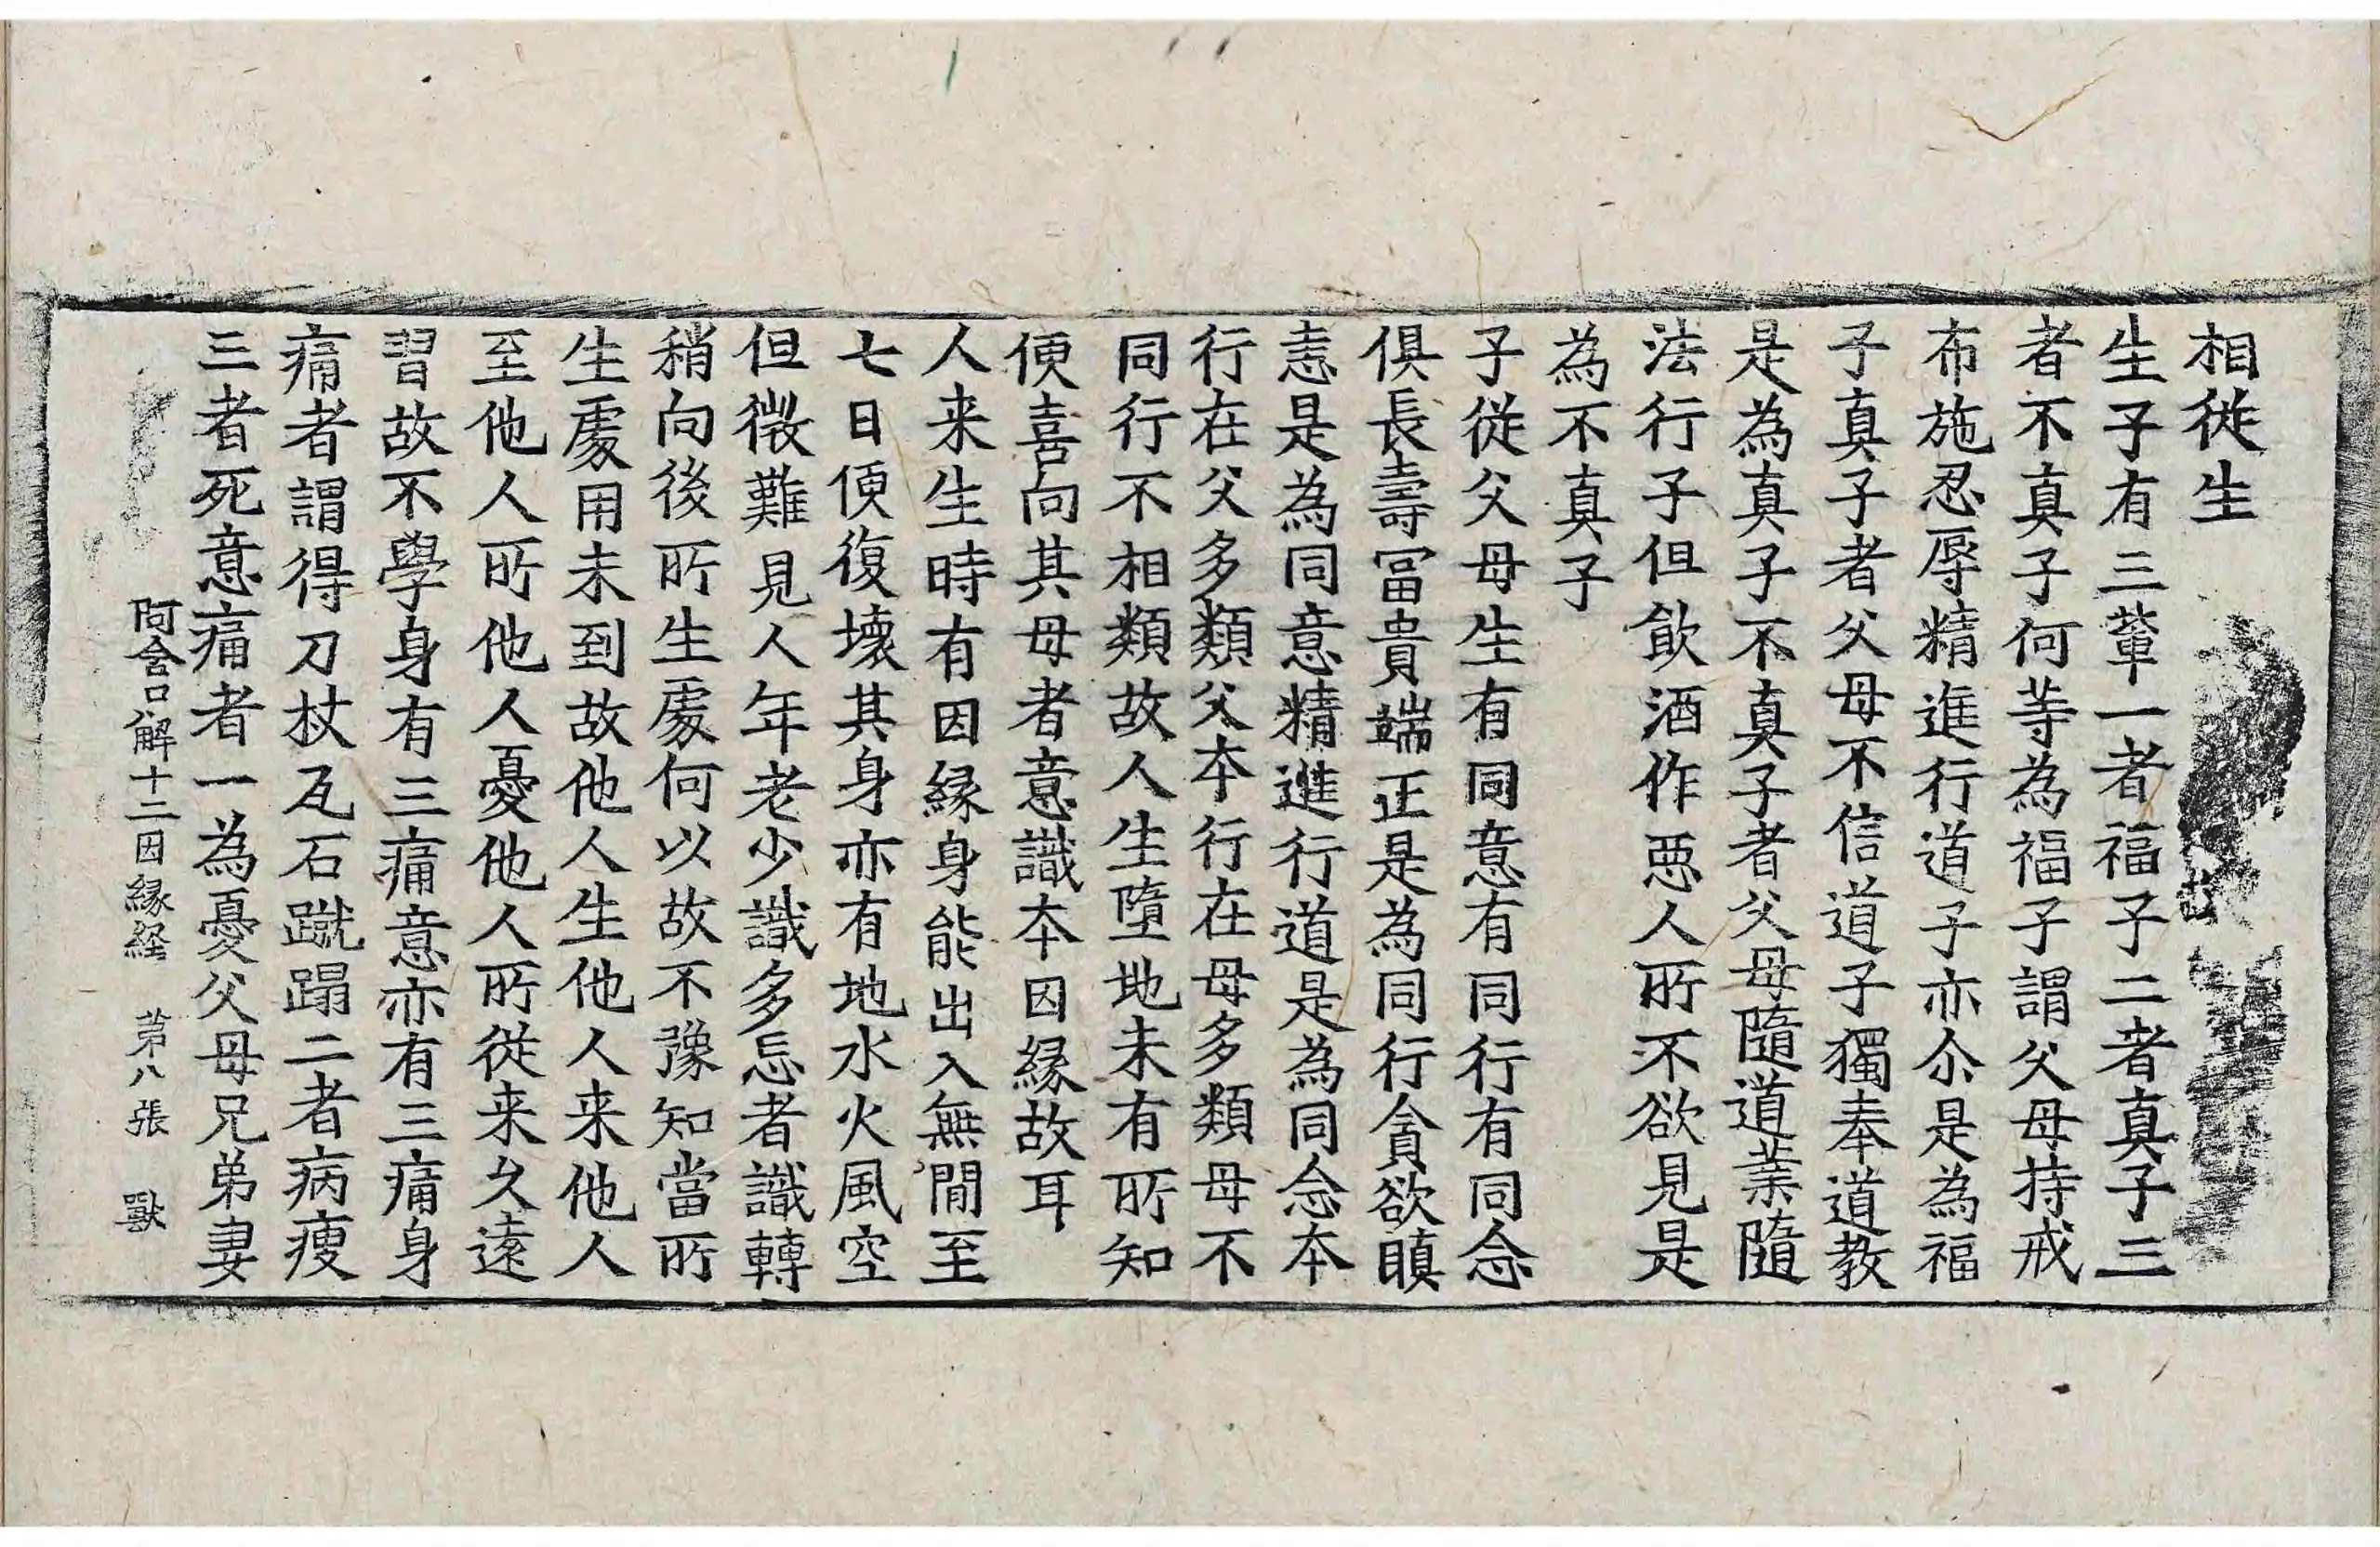 相従生
生子有三輩一者福子二者真子三
者不真子何等為福子謂父母持戒
布施忍辱精進行道子亦尒是為福
子真子者父母不信道子獨奉道教
是為真子不真子者父母隨道業隨
法行子但飲酒作惡人所不欲見是
為不真子
子従父母生有同意有同行有同念
俱長壽冨貴端正是為同行貪欲瞋
恚是為同意精進行道是為同念本
行在父多類父本行在母多類母不
同行不相類故人生墮地未有所知
便喜向其母者意識本因縁故耳
人来生時有因縁身能出入無閒至
七日便復壊其身亦有地水火風空
但微難見人年老少識多忘者識轉
稍向後所生處何以故不豫知當所
生處用未到故他人生他人来他人
至他人所他人憂他人所従来久遠
習故不學身有三痛意亦有三痛身
痛者謂得刀杖瓦石蹴蹋二者病瘦
三者死意痛者一為憂父母兄弟妻
阿含口解十二因縁経 第八張 獸